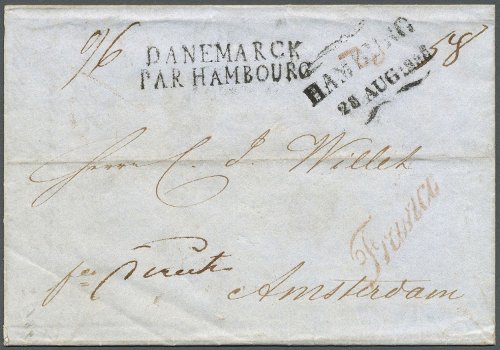 96
DANEMARCK
PAR HAMBOURG
HAMBURG
28 AUG
58
Herrn C. J. Willet
Franco
Amsterdam